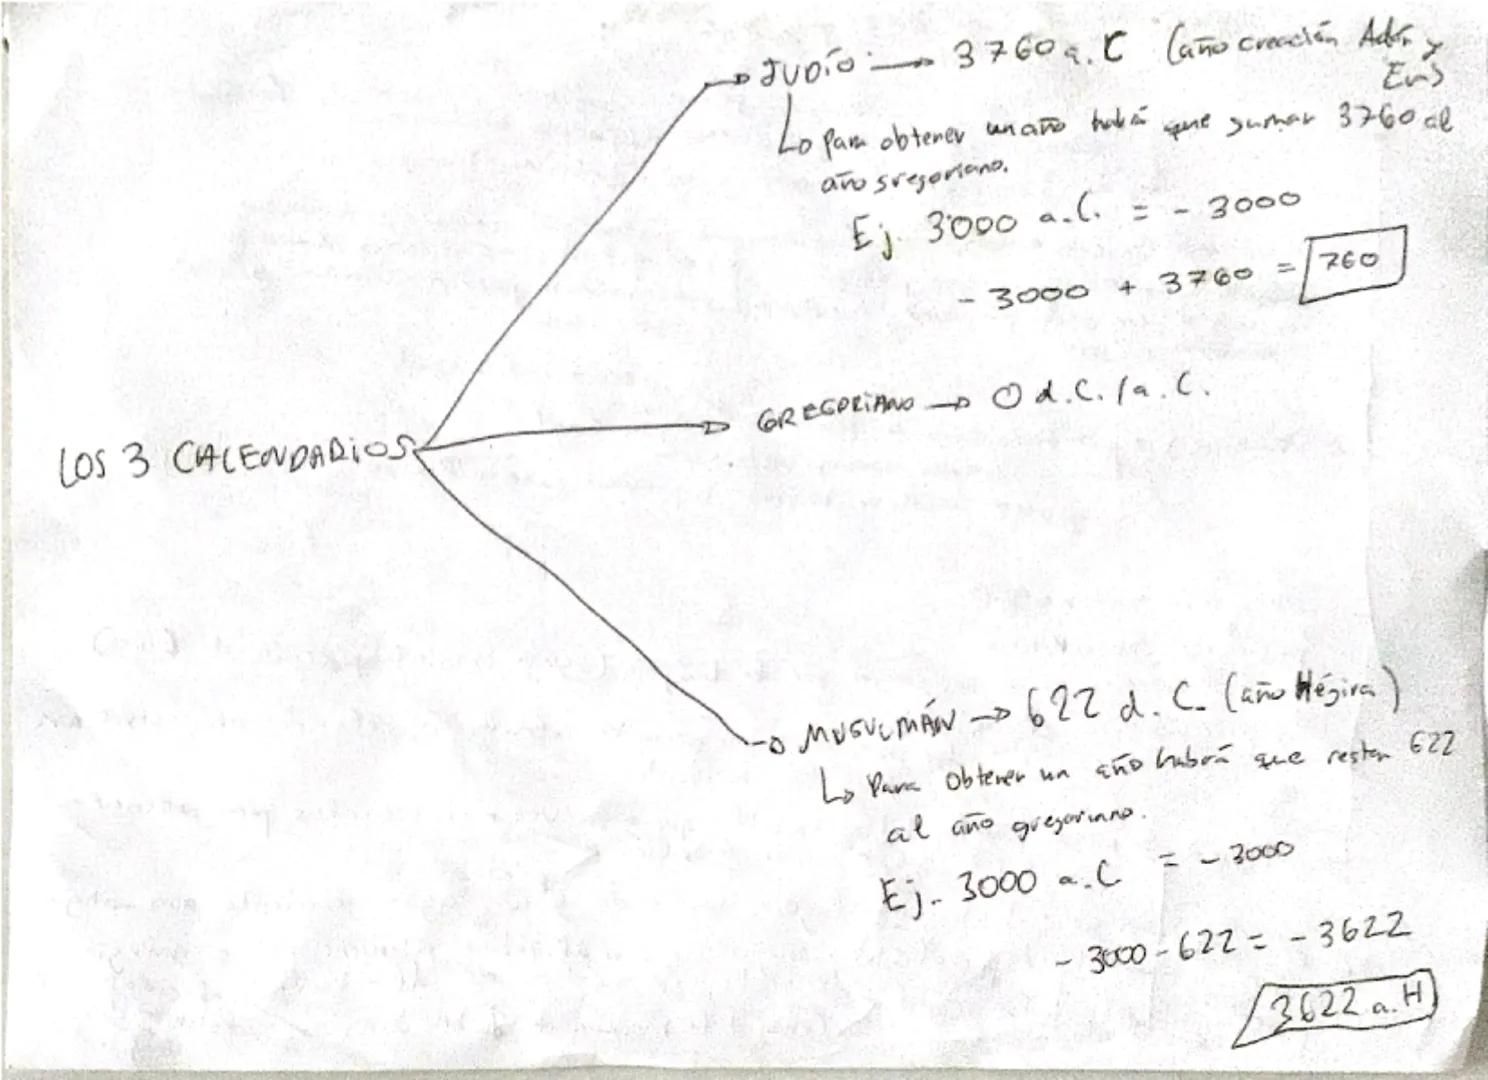 JUDÍO → 3760 a.C (año creación Adán y
Eva)
↳ Para obtener un año habrá que sumar 3760 al
año gregoriano.
Ej. 3000 a.C. = - 3000
- 3000 + 3760 = 760
LOS 3 CALENDARIOS
GREGORIANO → 0 d.C. / a.C.
MUSULMÁN → 622 d.C. (año Hégira)
↳ Para obtener un año habrá que restar 622
al año gregoriano.
Ej. 3000 a.C = - 3000
- 3000 - 622 = - 3622
3622 a.H